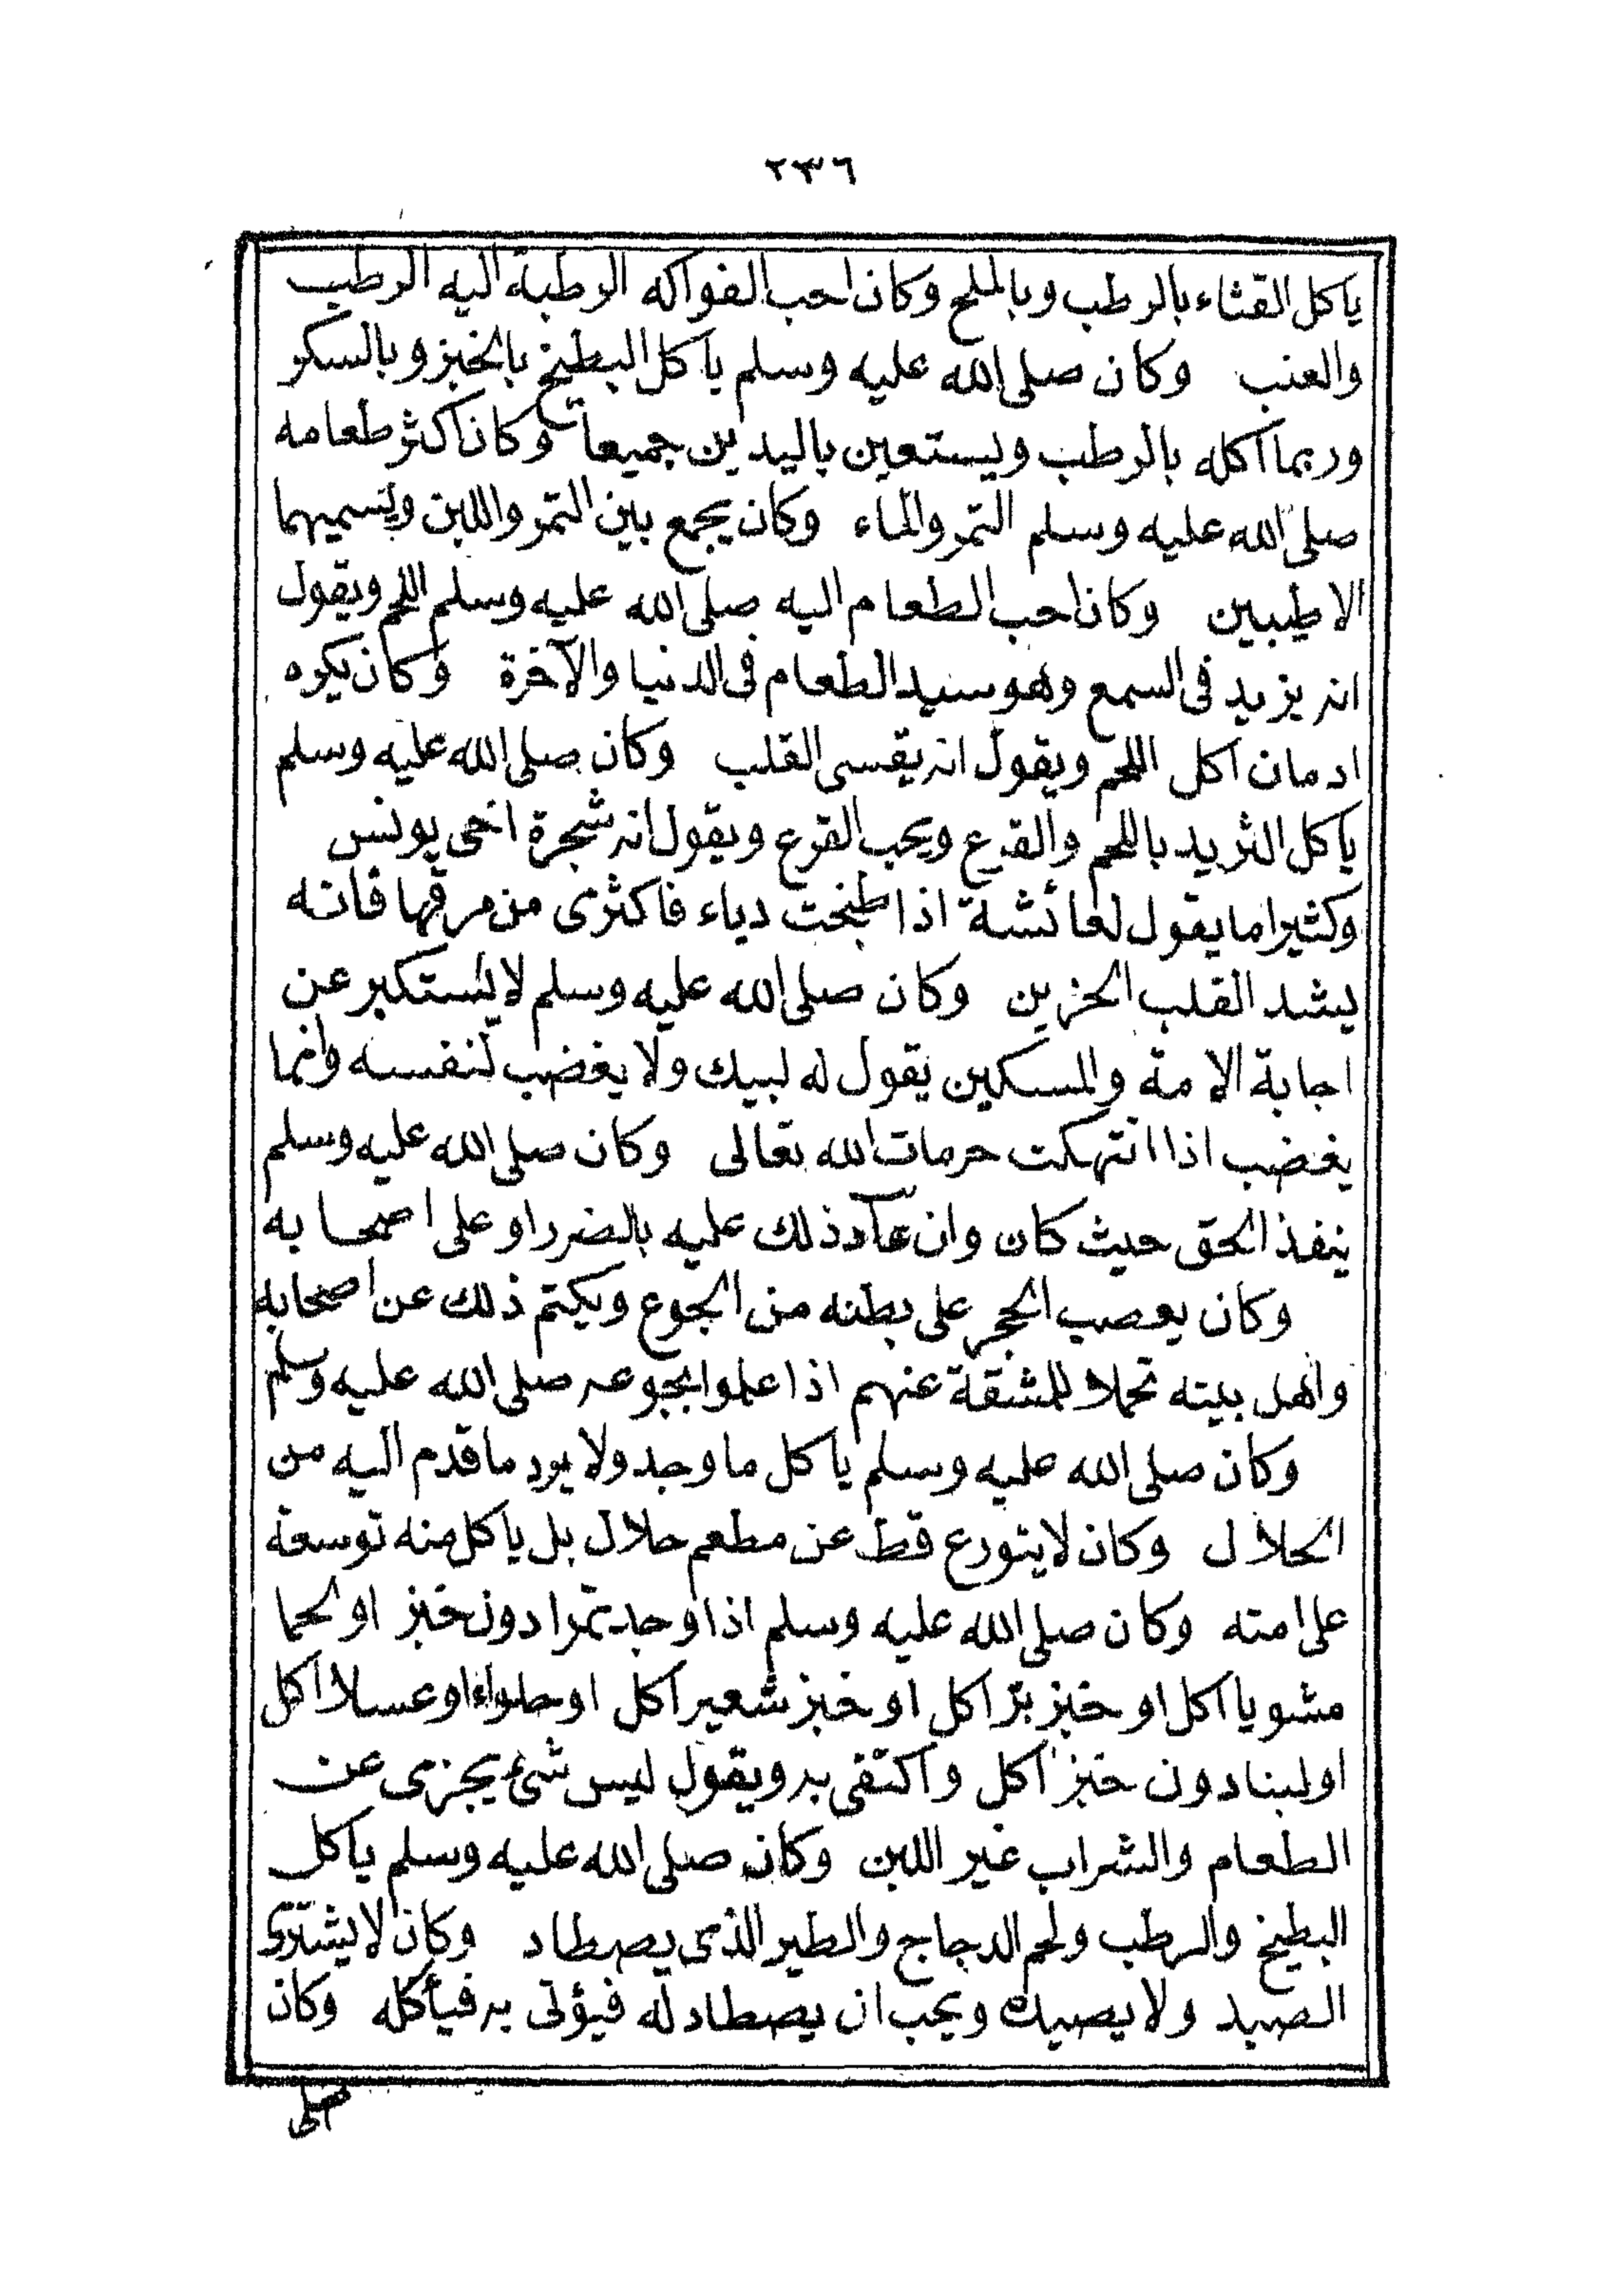 ٢٣٦
ياكل القثاء بالرطب وبالملح وكان احب الفواكه الرطبة اليه الرطب
والعنب وكان صلى الله عليه وسلم ياكل البطيخ بالخبز وبالسكر
وربما اكله بالرطب ويستعين باليدين جميعا وكان اكثر طعامه
صلى الله عليه وسلم التمر والماء وكان يجمع بين التمر واللبن ويسميهما
الاطيبين وكان احب الطعام اليه صلى الله عليه وسلم اللحم ويقول
انه يزيد فى السمع وهو سيد الطعام فى الدنيا والآخرة وكان يكره
ادمان اكل اللحم ويقول انه يقسى القلب وكان صلى الله عليه وسلم
ياكل الثريد باللحم والقرع ويحب القرع ويقول انه شجرة اخى يونس
وكثيرا ما يقول لعائشة اذا طبخت دباء فاكثرى من مرقها فانه
يشد القلب الحزين وكان صلى الله عليه وسلم لا يستكبر عن
اجابة الامة والمسكين يقول له لبيك ولا يغضب لنفسه وانما
يغضب اذا انتهكت حرمات الله تعالى وكان صلى الله عليه وسلم
ينفذ الحق حيث كان وان عاد ذلك عليه بالضرر او على اصحابه
وكان يعصب الحجر على بطنه من الجوع ويكتم ذلك عن اصحابه
واهل بيته تحملا للمشقة عنهم اذا علموا بجوعه صلى الله عليه وسلم
وكان صلى الله عليه وسلم ياكل ما وجد ولا يرد ما قدم اليه من
الحلال وكان لا يتورع قط عن مطعم حلال بل ياكل منه توسعة
على امته وكان صلى الله عليه وسلم اذا وجد تمرا دون خبز او لحما
مشويا اكل او خبز برّ اكل او خبز شعير اكل او حلواء او عسلا اكل
او لبنا دون خبز اكل واكتفى به ويقول ليس شئ يجزى عن
الطعام والشراب غير اللبن وكان صلى الله عليه وسلم ياكل
البطيخ والرطب ولحم الدجاج والطير الذى يصطاد وكان لا يشترى
الصيد ولا يصيده ويحب ان يصطاد له فيؤتى به فيأكله وكان
صلى